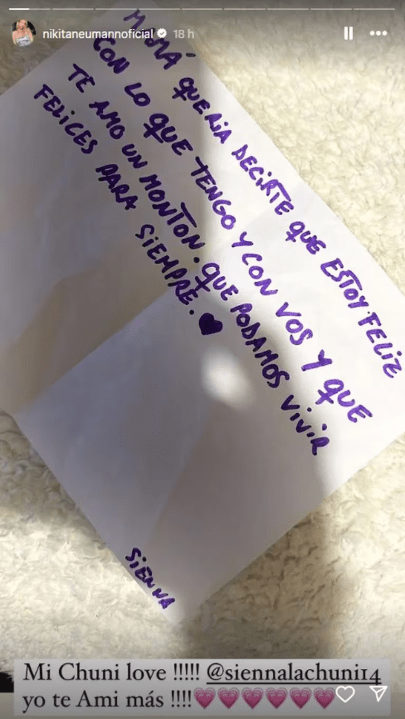 nikitaneumannofficial 18 h
MAMÁ QUERIA DECIRTE QUE ESTOY FELIZ
CON LO QUE TENGO Y CON VOS Y QUE
TE AMO UN MONTON. QUE PODAMOS VIVIR
FELICES PARA SIEMPRE.
SiENNA
Mi Chuni love !!!!! @siennalachuni14
yo te Ami más !!!!💗💗💗💗💗💗